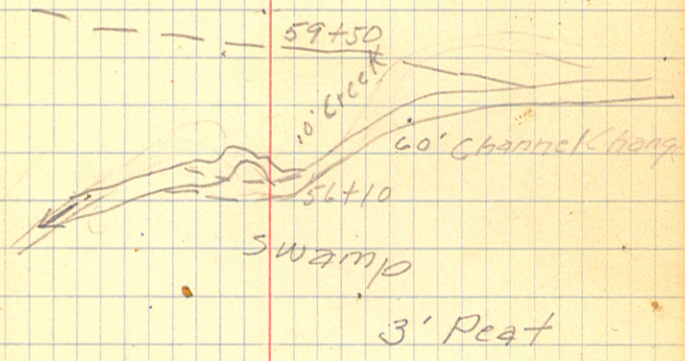 59+50
10' Creek
60' Channel Chang
56+10
Swamp
3' Peat